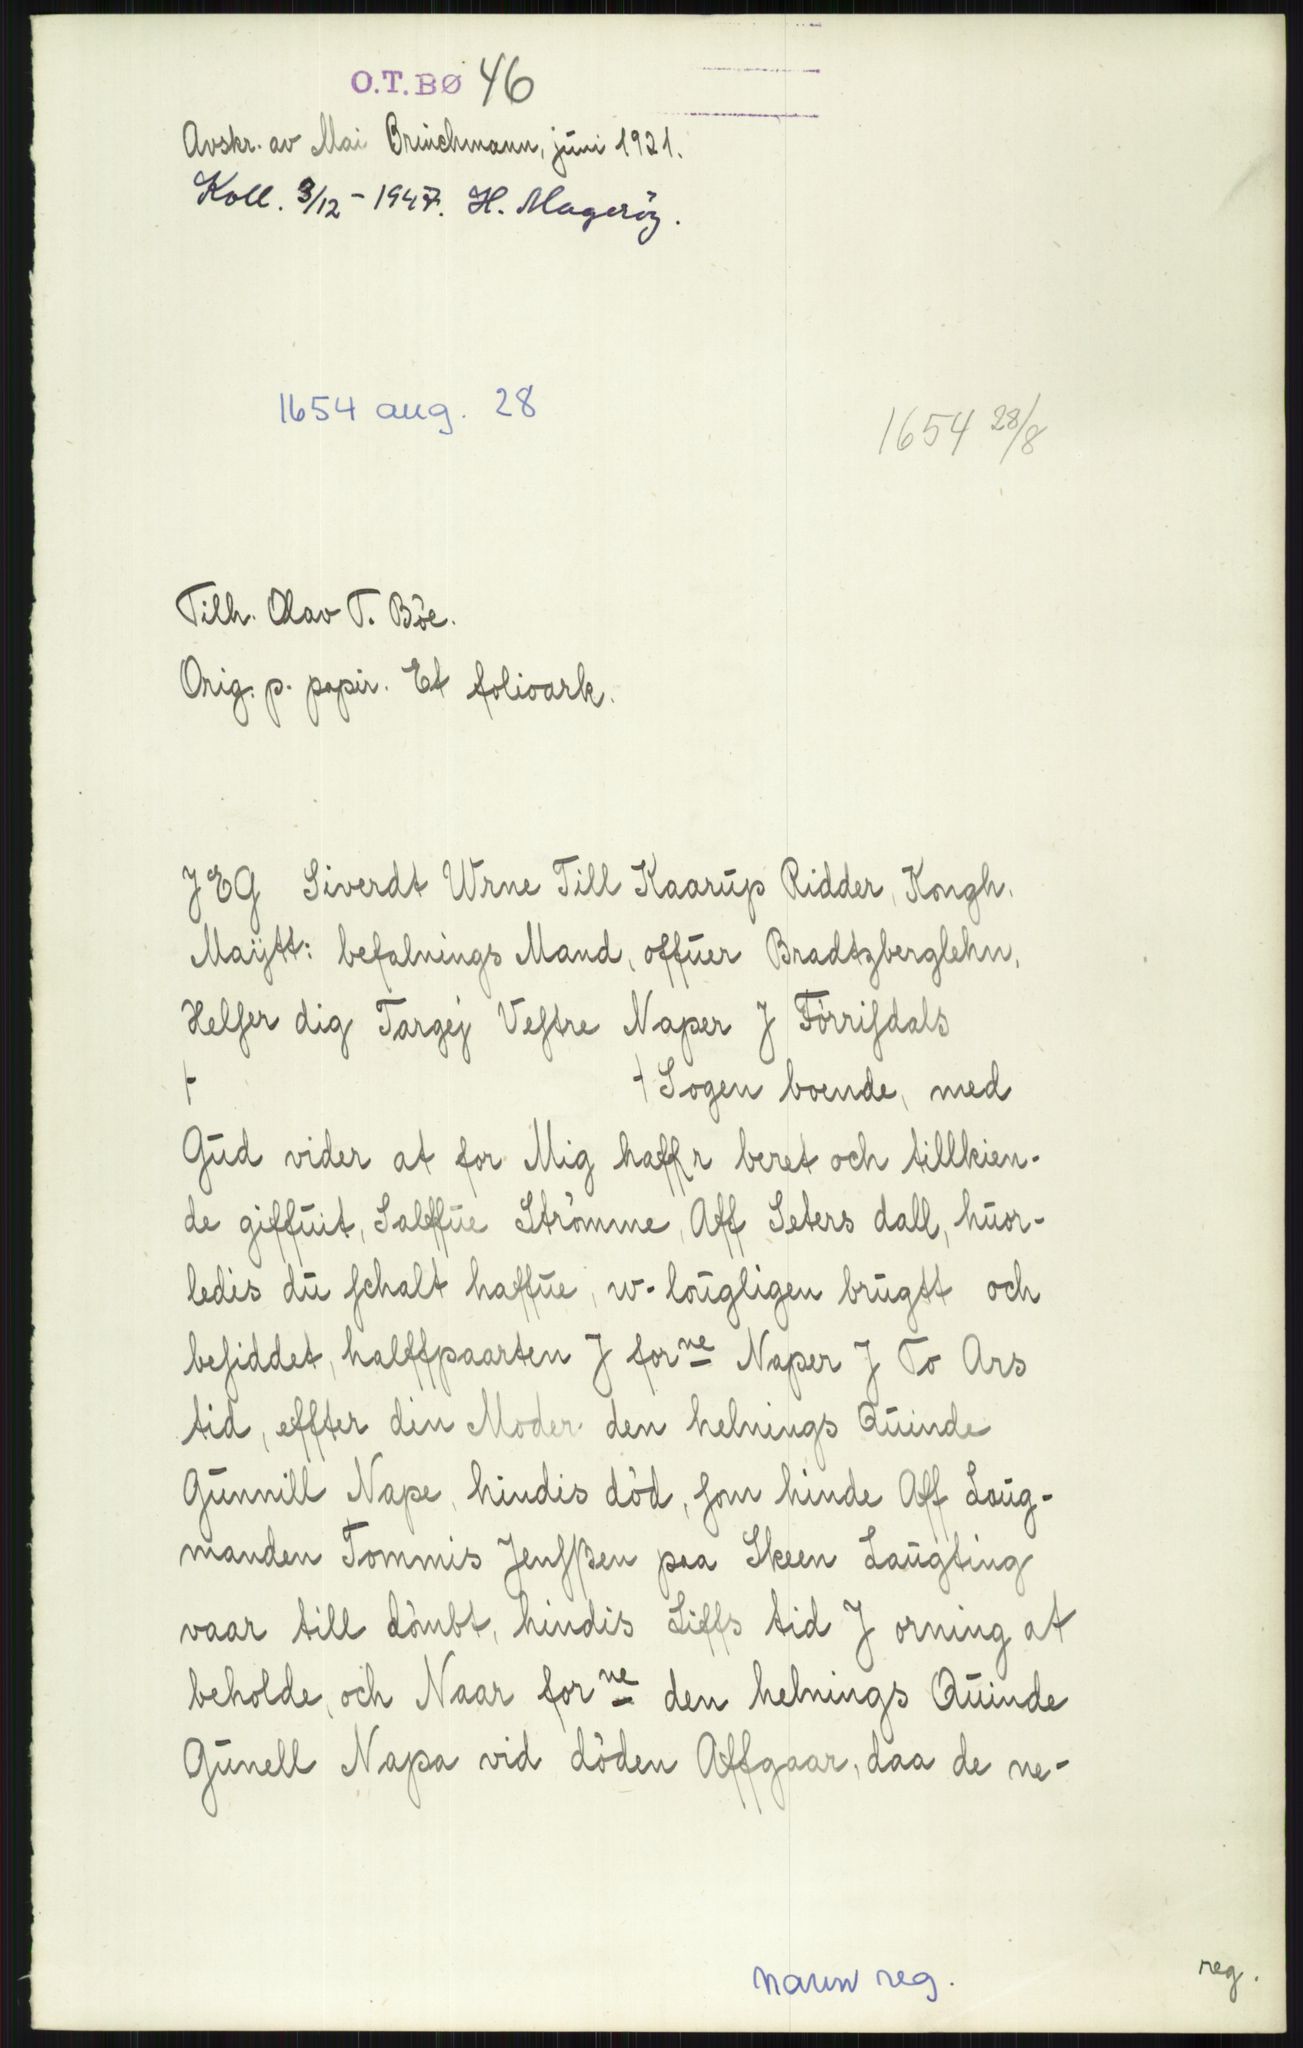 O.T.BØ 46
Avskr. av Mai Brinchmann, juni 1921.
Koll. 3/12 - 1947. H. Mageröy.
1654 aug. 28
1654 28/8
Tilh. Olav T. Böe.
Orig. p. papir. Et folioark.
JEG Siverdt Wrne Till Kaarup Ridder, Kongh.
Maÿtt: befalnings Mand, offuer Bradtzberglehn,
Helſer dig Targej Veſtre Naper J Förriſdals
⊢ ⊣ Sogen boende, med
Gud vider at for Mig haffr beret och tillkien-
de giffuit, Salffue Strömme, Aff Seters dall, huor-
ledis du ſchalt haffue, w-lougligen brugtt och
beſiddet, halffpaarten J forne Naper J To Ars
tid, effter din Moder den helnings Quinde
Gunnill Nape, hindis död, ſom hinde Aff Laug-
manden Tommis Jenſßen paa Skeen Laugting
vaar till dömbt, hindis Liffs tid J orning at
beholde, och Naar forne den helnings Quinde
Gunell Napa vid döden Affgaar, daa de ne-
navn reg.
reg.